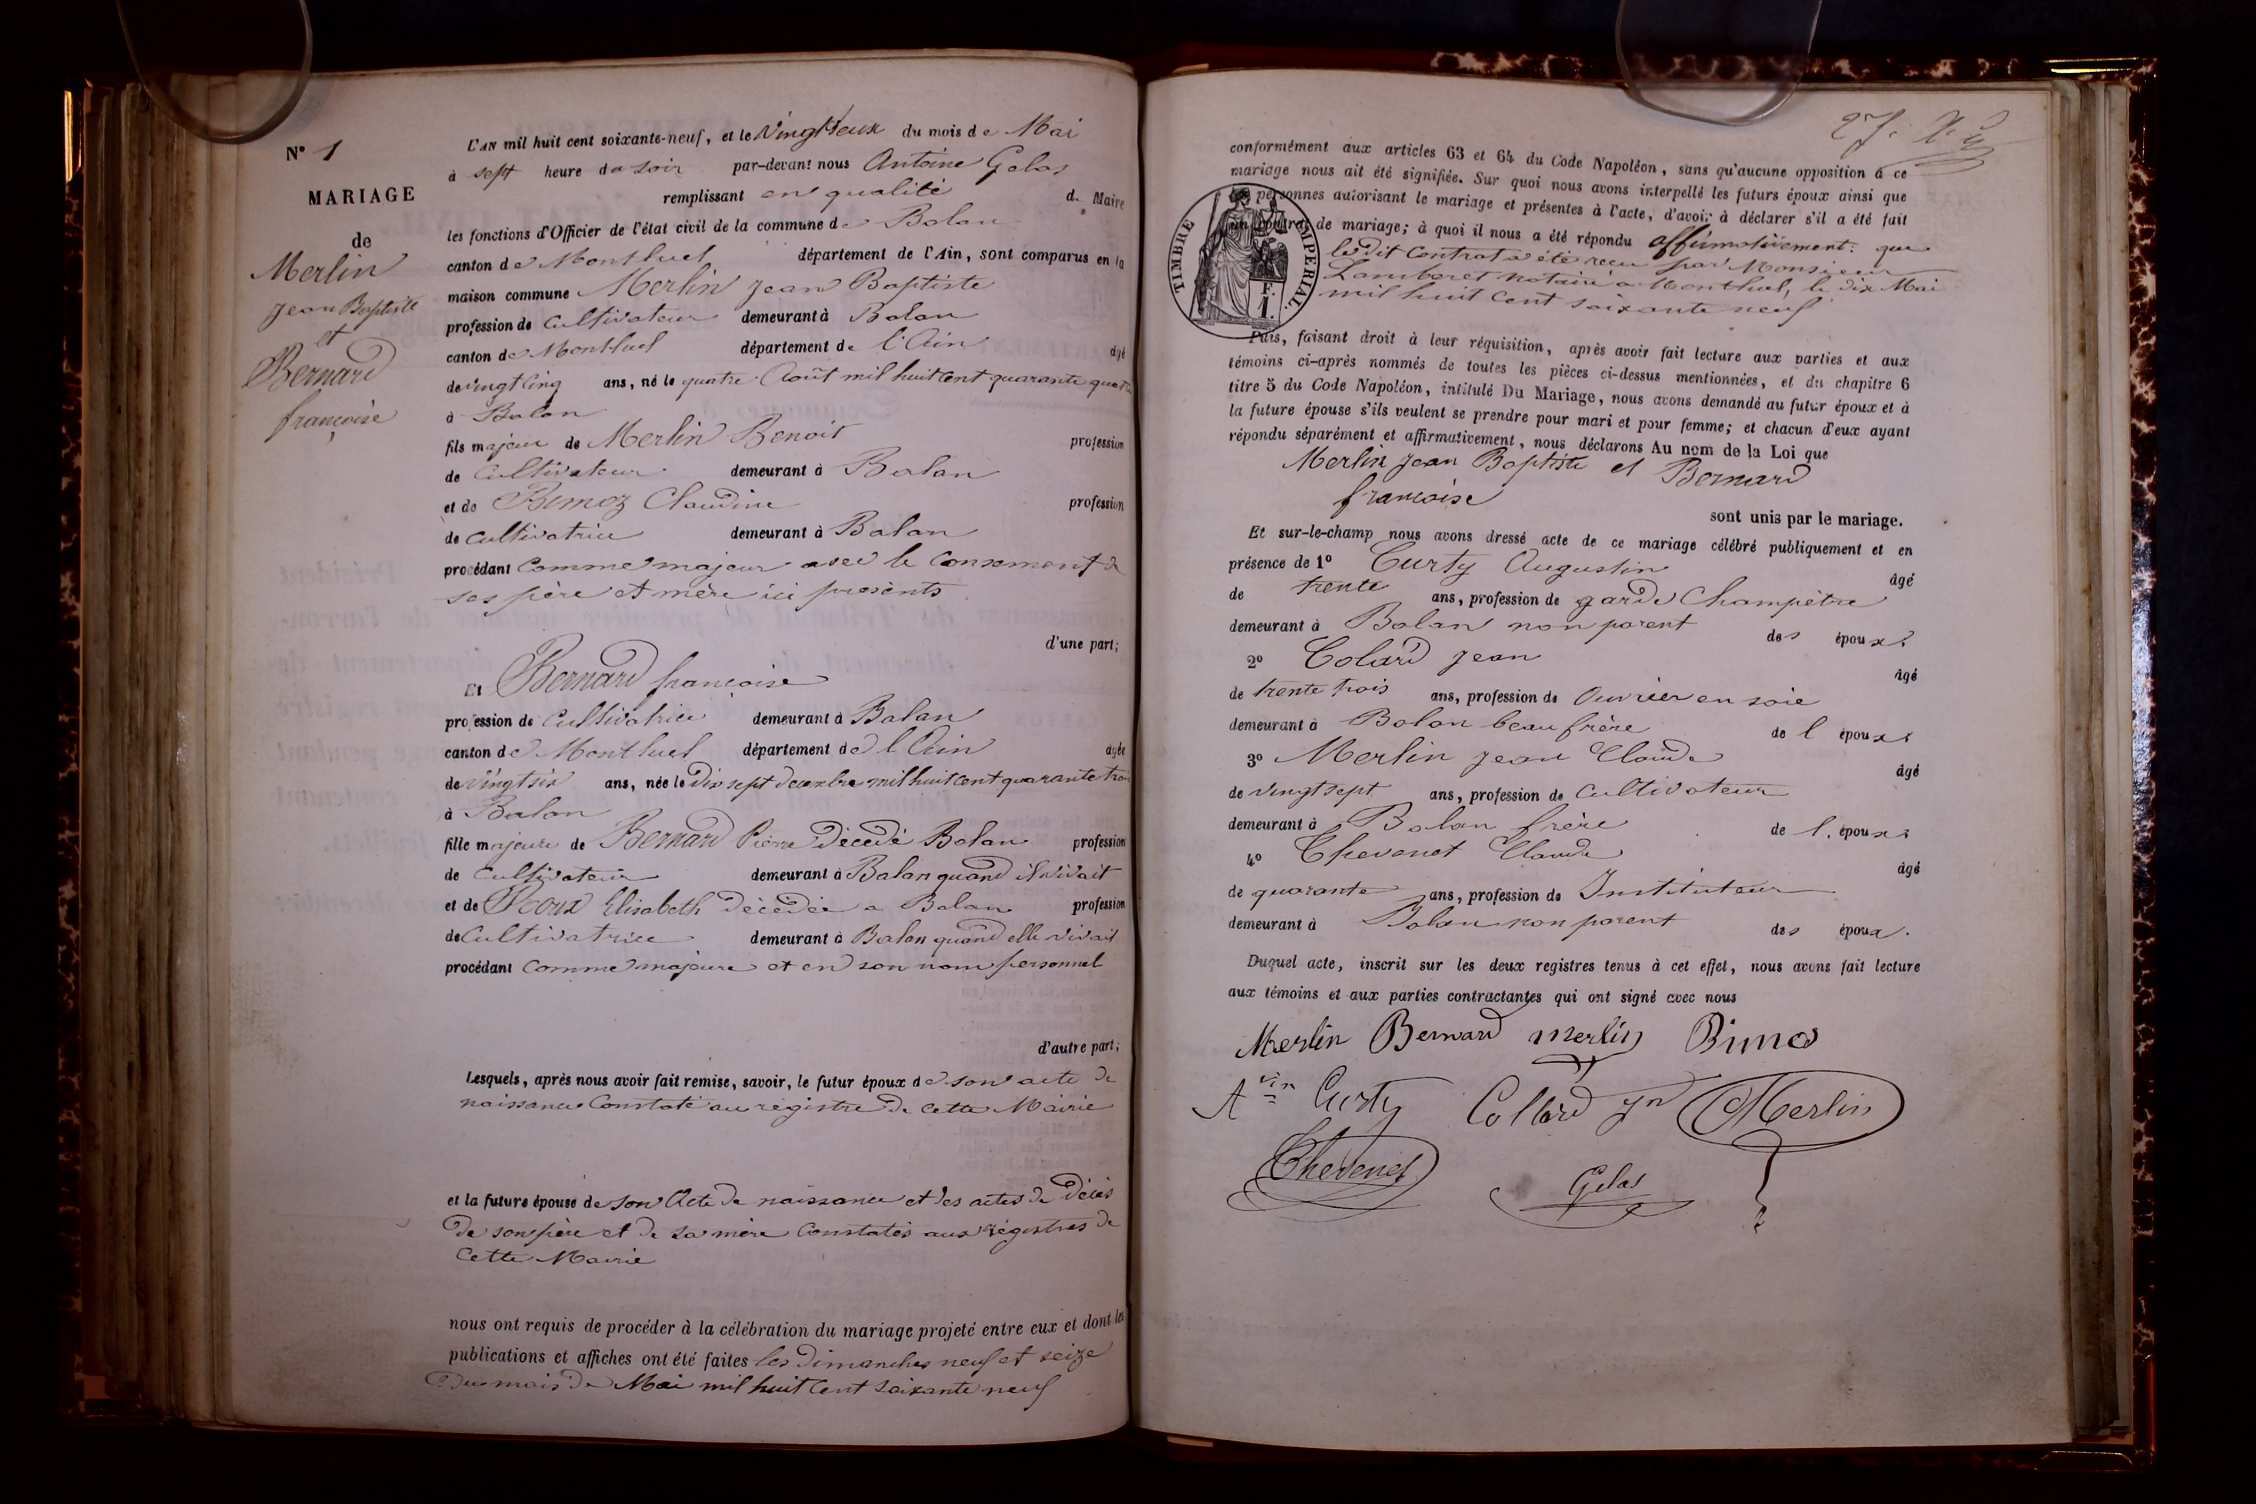 N° 1
MARIAGE
de
Merlin
Jean Baptiste
et
Bernard
françoise
L'AN mil huit cent soixante-neuf, et le Vingt deux du mois de Mai
à sept heure du soir par-devant nous Antoine Gelas
remplissant en qualité de Maire
les fonctions d'Officier de l'état civil de la commune de Balan
canton de Montluel département de l'Ain, sont comparus en la
maison commune Merlin Jean Baptiste
profession de Cultivateur demeurant à Balan
canton de Montluel département de l'Ain âgé
de vingt Cinq ans, né le quatre Août mil huit cent quarante quatre
à Balan
fils majeur de Merlin Benoit profession
de Cultivateur demeurant à Balan
et de Bimoz Claudine profession
de Cultivatrice demeurant à Balan
procédant Comme majeur avec le Consement de
ses père et mère ici présents
d'une part;
Et Bernard françoise
profession de Cultivatrice demeurant à Balan
canton de Montluel département de l'Ain âgée
de Vingt six ans, née le Dix sept decembre mil huit cent quarante trois
à Balan
fille majeure de Bernard Pierre Décédé Balan profession
de Cultivateur demeurant à Balan quand il vivait
et de Roux Elisabeth Décédée a Balan profession
de Cultivatrice demeurant à Balan quand elle vivait
procédant Comme majeure et en son nom personnel
d'autre part;
Lesquels, après nous avoir fait remise, savoir, le futur époux de son acte de
naissance Constaté au régistre de cette Mairie
et la future épouse de son Acte de naissance et des actes de Décès
de son père et de sa mère Constatés aux régistres de
Cette Mairie
nous ont requis de procéder à la célébration du mariage projeté entre eux et dont les
publications et affiches ont été faites les Dimanches neuf et seize
Du mois de Mai mil huit Cent soixante neuf
conformément aux articles 63 et 64 du Code Napoléon, sans qu'aucune opposition à ce
mariage nous ait été signifiée. Sur quoi nous avons interpellé les futurs époux ainsi que
les personnes autorisant le mariage et présentes à l'acte, d'avoir à déclarer s'il a été fait
un contrat de mariage; à quoi il nous a été répondu affirmativement: que
le dit Contrat a été reçu par Monsieur
Lamberet notaire a Montluel, le dix Mai
mil huit Cent soixante neuf
TIMBRE IMPERIAL
F.
1.
Puis, faisant droit à leur réquisition, après avoir fait lecture aux parties et aux
témoins ci-après nommés de toutes les pièces ci-dessus mentionnées, et du chapitre 6
titre 5 du Code Napoléon, intitulé Du Mariage, nous avons demandé au futur époux et à
la future épouse s'ils veulent se prendre pour mari et pour femme; et chacun d'eux ayant
répondu séparément et affirmativement, nous déclarons Au nom de la Loi que
Merlin Jean Baptiste et Bernard
françoise
sont unis par le mariage.
Et sur-le-champ nous avons dressé acte de ce mariage célébré publiquement et en
présence de 1° Curty Augustin âgé
de trente ans, profession de garde Champêtre
demeurant à Balan non parent des époux
2° Colard Jean âgé
de trente trois ans, profession de Ouvrier en soie
demeurant à Balan beau frère de l époux
3° Merlin Jean Claude âgé
de vingt sept ans, profession de Cultivateur
demeurant à Balan frère de l. époux
4° Chevenet Claude âgé
de quarante ans, profession de Instituteur
demeurant à Balan non parent des époux.
Duquel acte, inscrit sur les deux registres tenus à cet effet, nous avons fait lecture
aux témoins et aux parties contractantes qui ont signé avec nous
Merlin Bernard merlin Bimos
A in Curty Collard jn Merlin
Chevenet Gelas